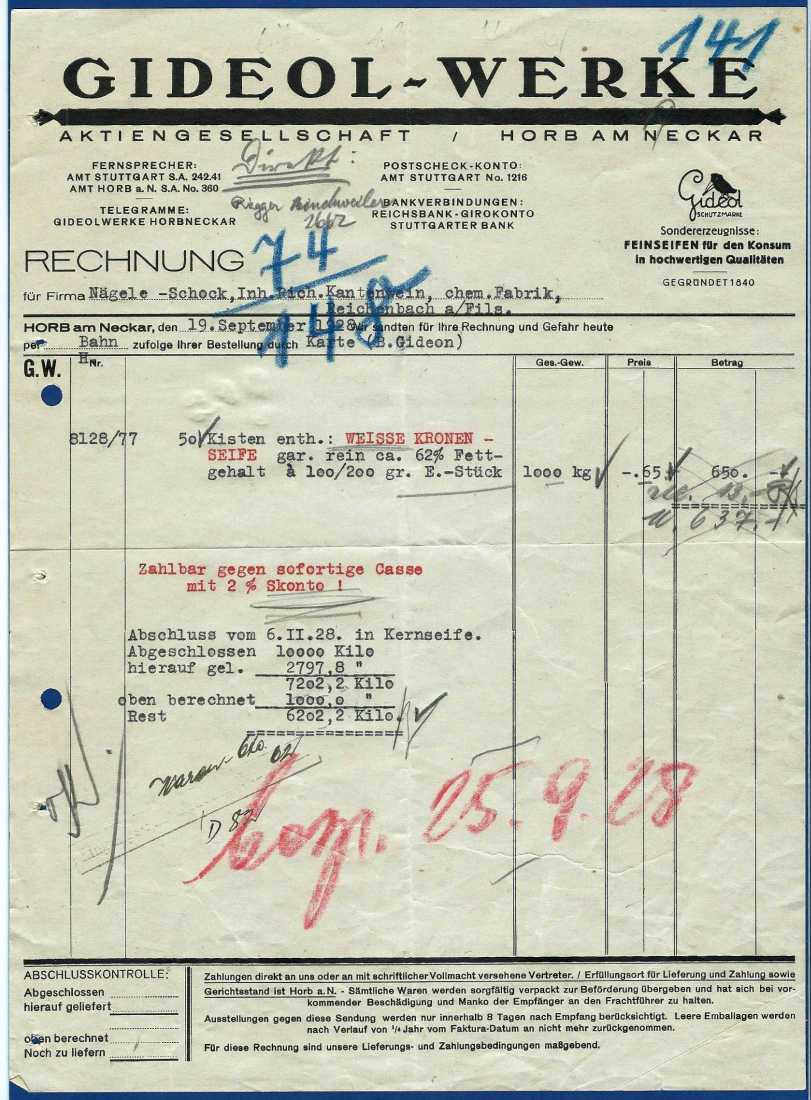 141
GIDEOL-WERKE
AKTIENGESELLSCHAFT / HORB AM NECKAR
FERNSPRECHER:
AMT STUTTGART S.A. 242.41
AMT HORB a. N. S.A. No. 360
TELEGRAMME:
GIDEOLWERKE HORBNECKAR
Direkt:
2662
POSTSCHECK-KONTO:
AMT STUTTGART No. 1216
BANKVERBINDUNGEN:
REICHSBANK-GIROKONTO
STUTTGARTER BANK
Gideol
SCHUTZMARKE
Sondererzeugnisse:
FEINSEIFEN für den Konsum
in hochwertigen Qualitäten
GEGRÜNDET 1840
RECHNUNG
74
148
für Firma Nägele -Schock, Inh. Rich. Kantenwein, chem. Fabrik,
Reichenbach a/Fils.
HORB am Neckar, den 19. September 1928 Wir sandten für Ihre Rechnung und Gefahr heute
per Bahn zufolge Ihrer Bestellung durch Karte (B. Gideon)
G.W. H Nr. Ges.-Gew. Preis Betrag
8128/77 50 Kisten enth.: WEISSE KRONEN -
SEIFE gar. rein ca. 62% Fett-
gehalt à 100/200 gr. E.-Stück 1000 kg -.65 650. -
13.-
637.-
Zahlbar gegen sofortige Casse
mit 2 % Skonto !
Abschluss vom 6.II.28. in Kernseife.
Abgeschlossen 10000 Kilo
hierauf gel. 2797,8 "
7202,2 Kilo
oben berechnet 1000,0 "
Rest 6202,2 Kilo.
D 82
25.9.28
ABSCHLUSSKONTROLLE:
Abgeschlossen
hierauf geliefert
oben berechnet
Noch zu liefern
Zahlungen direkt an uns oder an mit schriftlicher Vollmacht versehene Vertreter. / Erfüllungsort für Lieferung und Zahlung sowie
Gerichtsstand ist Horb a. N. - Sämtliche Waren werden sorgfältig verpackt zur Beförderung übergeben und hat sich bei vor-
kommender Beschädigung und Manko der Empfänger an den Frachtführer zu halten.
Ausstellungen gegen diese Sendung werden nur innerhalb 8 Tagen nach Empfang berücksichtigt. Leere Emballagen werden
nach Verlauf von 1/4 Jahr vom Faktura-Datum an nicht mehr zurückgenommen.
Für diese Rechnung sind unsere Lieferungs- und Zahlungsbedingungen maßgebend.